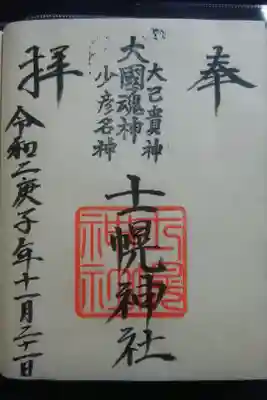 奉
大己貴神
大國魂神
少彦名神
拝
士幌神社
令和二庚子年十一月二十一日
士幌神社